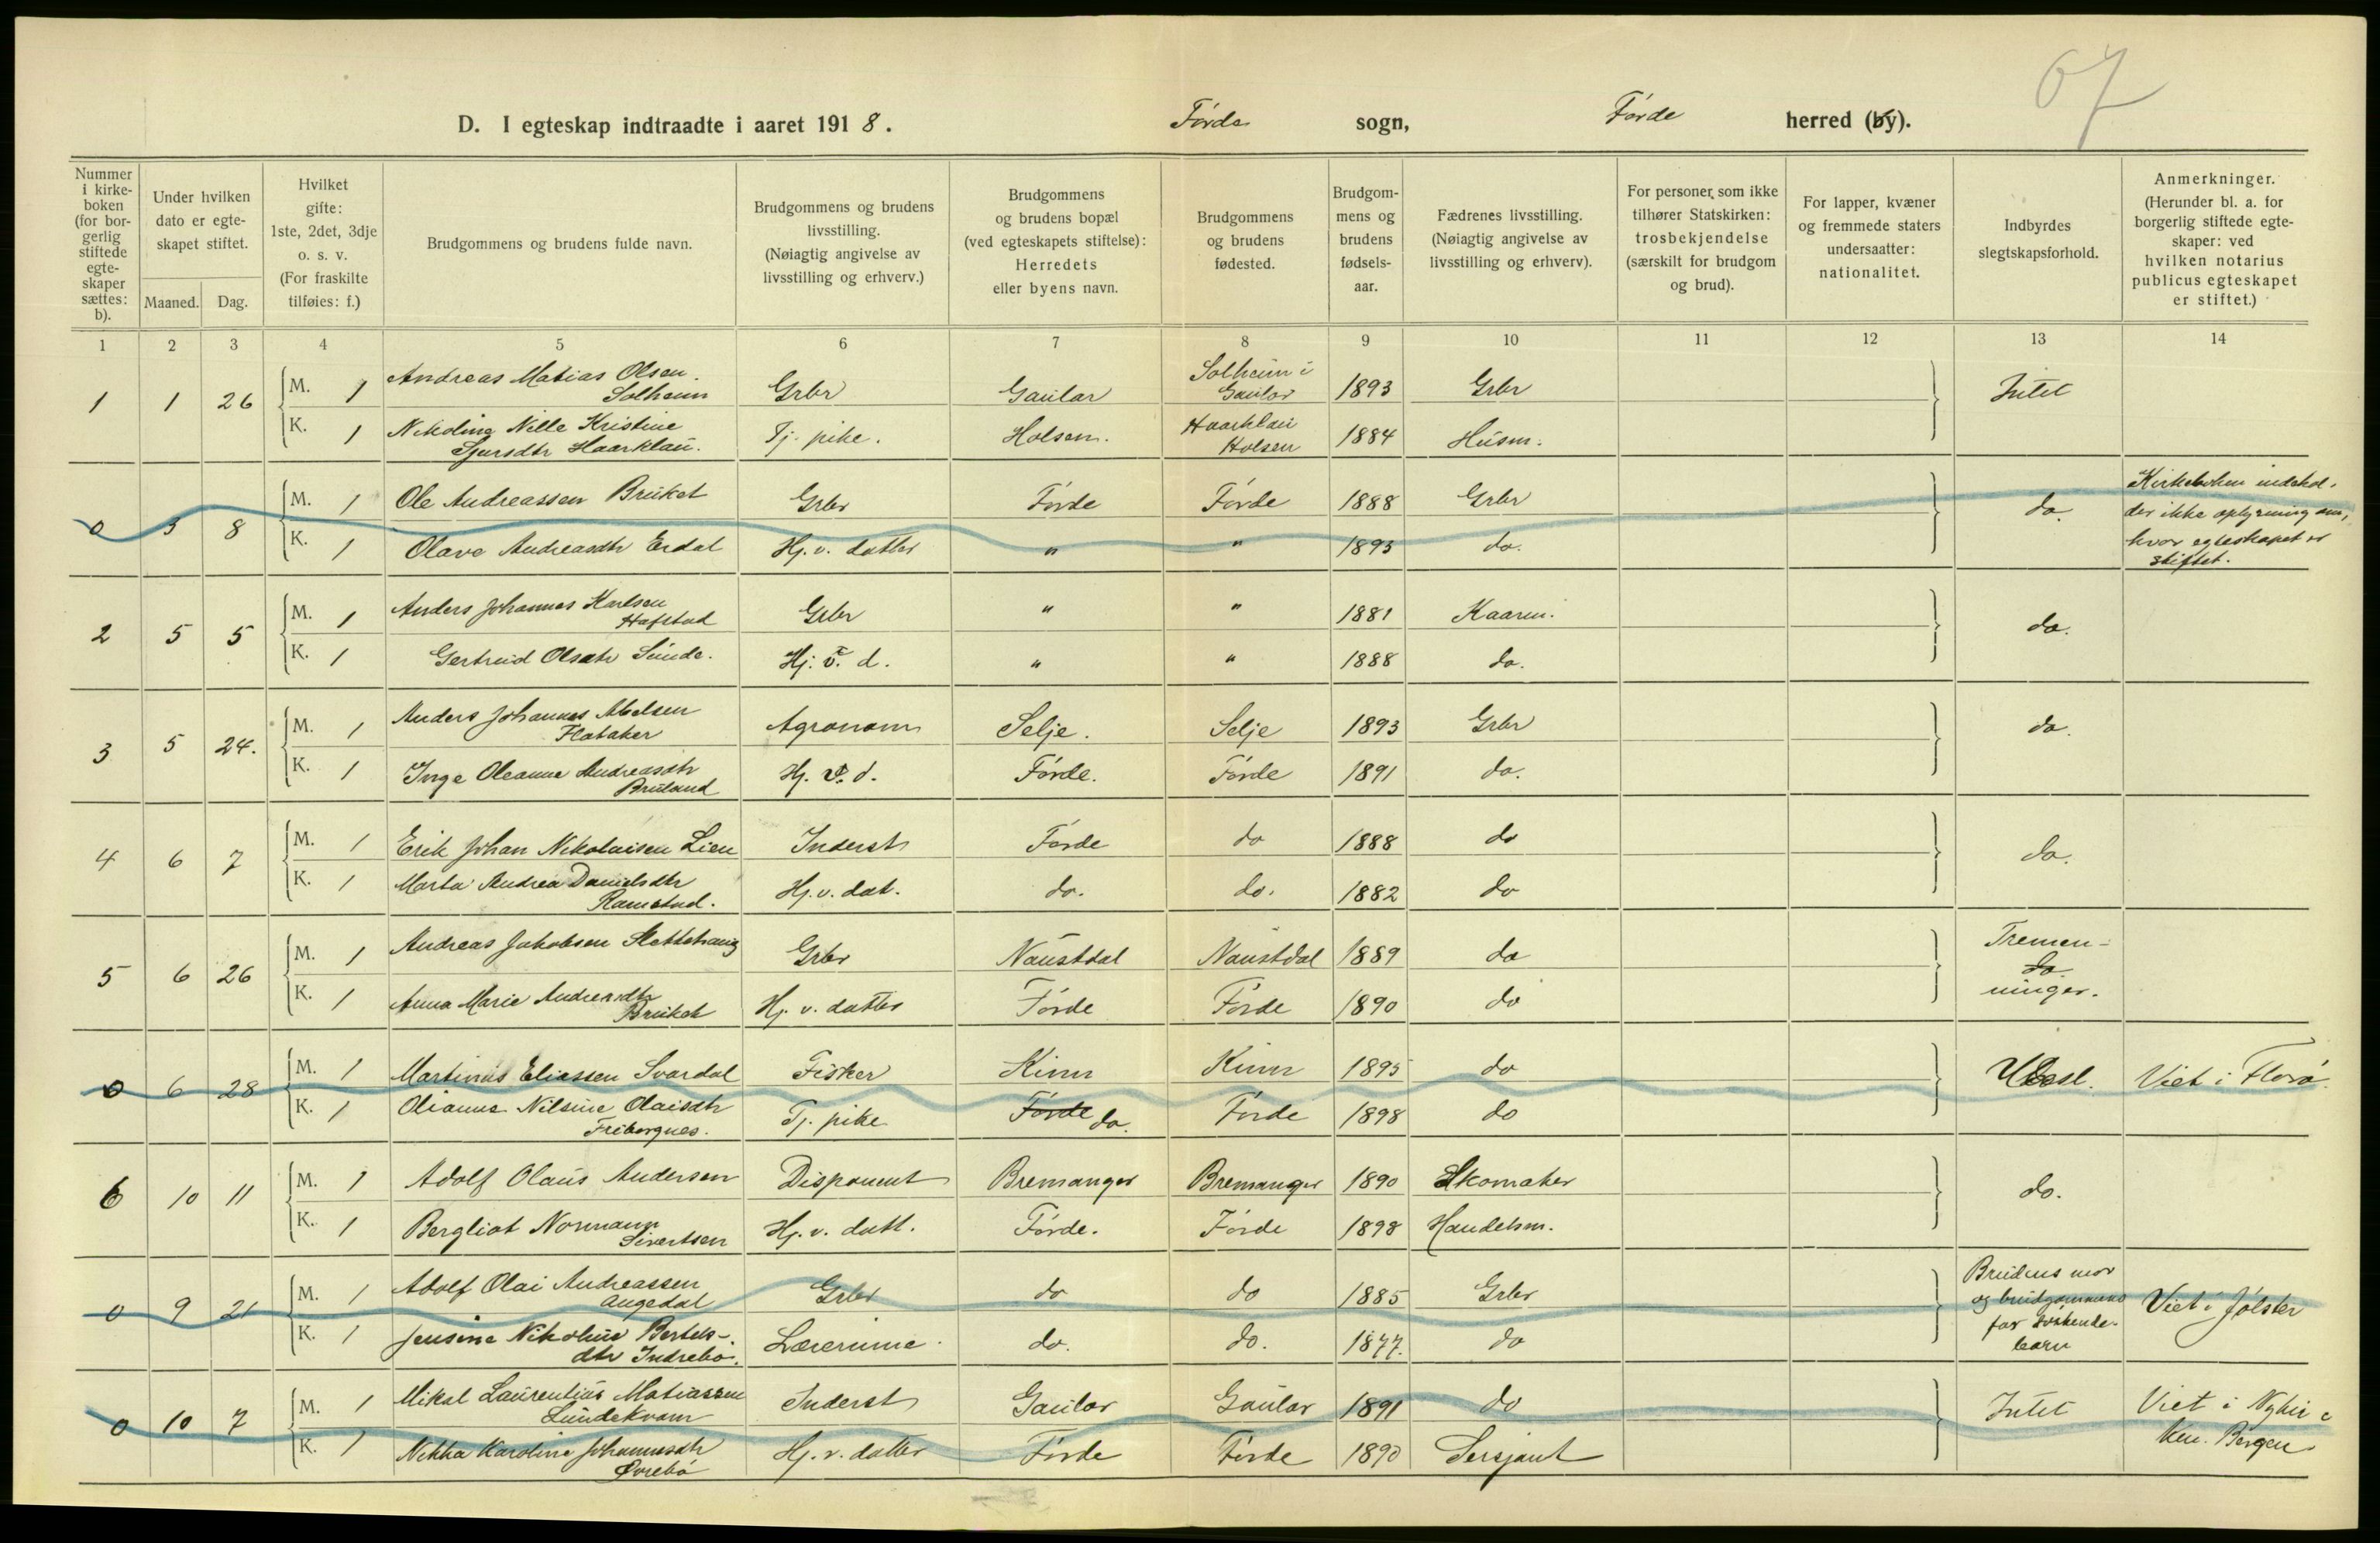 67
D. I egteskap indtraadte i aaret 1918. Førde sogn, Førde herred (by).
Nummer i kirkeboken (for borgerlig stiftede egteskaper sættes: b).
Under hvilken dato er egteskapet stiftet.
Maaned. Dag.
Hvilket gifte: 1ste, 2det, 3dje o. s. v. (For fraskilte tilføies: f.)
Brudgommens og brudens fulde navn.
Brudgommens og brudens livsstilling. (Nøiagtig angivelse av livsstilling og erhverv.)
Brudgommens og brudens bopæl (ved egteskapets stiftelse): Herredets eller byens navn.
Brudgommens og brudens fødested.
Brudgommens og brudens fødselsaar.
Fædrenes livsstilling. (Nøiagtig angivelse av livsstilling og erhverv).
For personer som ikke tilhører Statskirken: trosbekjendelse (særskilt for brudgom og brud).
For lapper, kvæner og fremmede staters undersaatter: nationalitet.
Indbyrdes slegtskapsforhold.
Anmerkninger. (Herunder bl. a. for borgerlig stiftede egteskaper: ved hvilken notarius publicus egteskapet er stiftet.)
1 2 3 4 5 6 7 8 9 10 11 12 13 14
1 1 26 M. 1 Andreas Matias Olsen Solheim Grbr Gaular Solheim i Gaular 1893 Grbr Intet
K. 1 Nikoline Nille Kristine Sjursdtr Haarklau. Tj. pike. Holsen. Haarklau Holsen 1884 Husm.
0 3 8 M. 1 Ole Andreassen Bruket Grbr Førde Førde 1888 Grbr do. Kirkeboken indehol-
der ikke oplysning om,
hvor egteskapet er
stiftet.
K. 1 Olava Andreasdtr Erdal Hj. v. datter " " 1893 do.
2 5 5 M. 1 Anders Johannes Karlsen Hafstad Grbr " " 1881 Kaarm. do.
K. 1 Gertruid Olsdtr Sunde. Hj. v. d. " " 1888 do.
3 5 24. M. 1 Anders Johannes Abelsen Flataker Agronom Selje. Selje 1893 Grbr do.
K. 1 Inga Oleanna Andreasdtr Bruland Hj. v. d. Førde. Førde 1891 do.
4 6 7 M. 1 Erik Johan Nikolaisen Lien Inderst Førde do 1888 do do.
K. 1 Marta Andrea Danielsdtr Ramstad. Hj. v. dat. do. do. 1882 do
5 6 26 M. 1 Andreas Jakobsen Slettehaug Grbr Naustdal Naustdal 1889 do Tremen-
do.
ninger.
K. 1 Anna Marie Andreasdtr Bruket Hj. v. datter Førde Førde 1890 do
0 6 28 M. 1 Martinus Eliassen Svardal Fisker Kinn Kinn 1895 do Ubesl. Viet i Florø.
K. 1 Olianna Nilsine Olaisdtr Friborgnes. Tj. pike Førde do. Førde 1898 do
6 10 11 M. 1 Adolf Olaus Andersen Disponent Bremanger Bremanger 1890 Skomaker do.
K. 1 Bergliot Normann Sivertsen Hj. v. datt. Førde. Førde 1898 Handelsm.
0 9 21 M. 1 Adolf Olai Andreassen Angedal Grbr do do 1885 Grbr Brudens mor
og brudgommens
far søskende-
barn Viet i Jølster
K. 1 Jensine Nikoline Bertels-
dtr Indrebø. Lærerinne do. do. 1877. do
0 10 7 M. 1 Mikal Laurentius Matiassen Lundekvam Inderst Gaular Gaular 1891 do Intet Viet i Nykir-
ken. Bergen
K. 1 Nikka Karoline Johannesdtr Øvrebø Hj. v. datter Førde Førde 1890 Sersjant